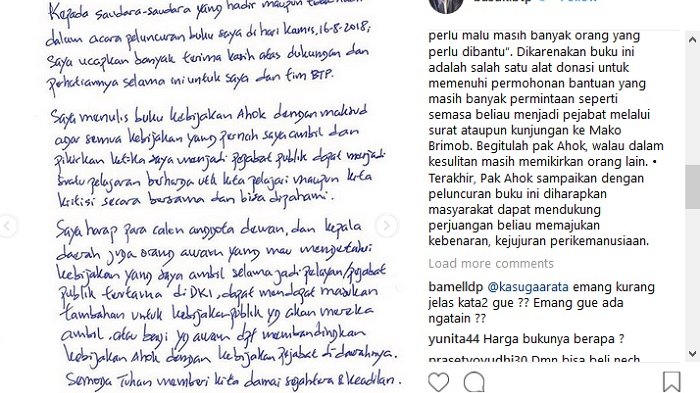 Kepada saudara-saudara yang hadir maupun
dalam acara peluncuran buku saya di hari Kamis, 16-8-2018,
Saya ucapkan banyak terima kasih atas dukungan dan
perhatiannya selama ini untuk saya dan tim BTP.
Saya menulis buku Kebijakan Ahok dengan maksud
agar semua kebijakan yang pernah saya ambil dan
pikirkan ketika saya menjadi pejabat publik dapat menjadi
suatu pelajaran berharga utk kita pelajari maupun kita
kritisi secara bersama dan bisa dipahami.
Saya harap para calon anggota dewan, dan kepala
daerah juga orang awam yang mau mengetahui
kebijakan yang saya ambil selama jadi pelayan/pejabat
publik terutama di DKI, dapat mendapat masukan
tambahan untuk kebijakan publik yg akan mereka
ambil, atau bagi yg awam dpt membandingkan
kebijakan Ahok dengan kebijakan pejabat di daerahnya.
Semoga Tuhan memberi kita damai sejahtera & keadilan.
perlu malu masih banyak orang yang
perlu dibantu". Dikarenakan buku ini
adalah salah satu alat donasi untuk
memenuhi permohonan bantuan yang
masih banyak permintaan seperti
semasa beliau menjadi pejabat melalui
surat ataupun kunjungan ke Mako
Brimob. Begitulah pak Ahok, walau dalam
kesulitan masih memikirkan orang lain. •
Terakhir, Pak Ahok sampaikan dengan
peluncuran buku ini diharapkan
masyarakat dapat mendukung
perjuangan beliau memajukan
kebenaran, kejujuran perikemanusiaan.
Load more comments
bamelldp @kasugaarata emang kurang
jelas kata2 gue ?? Emang gue ada
ngatain ??
yunita44 Harga bukunya berapa ?
prasetyoyudhi30 Dmn bisa beli nech